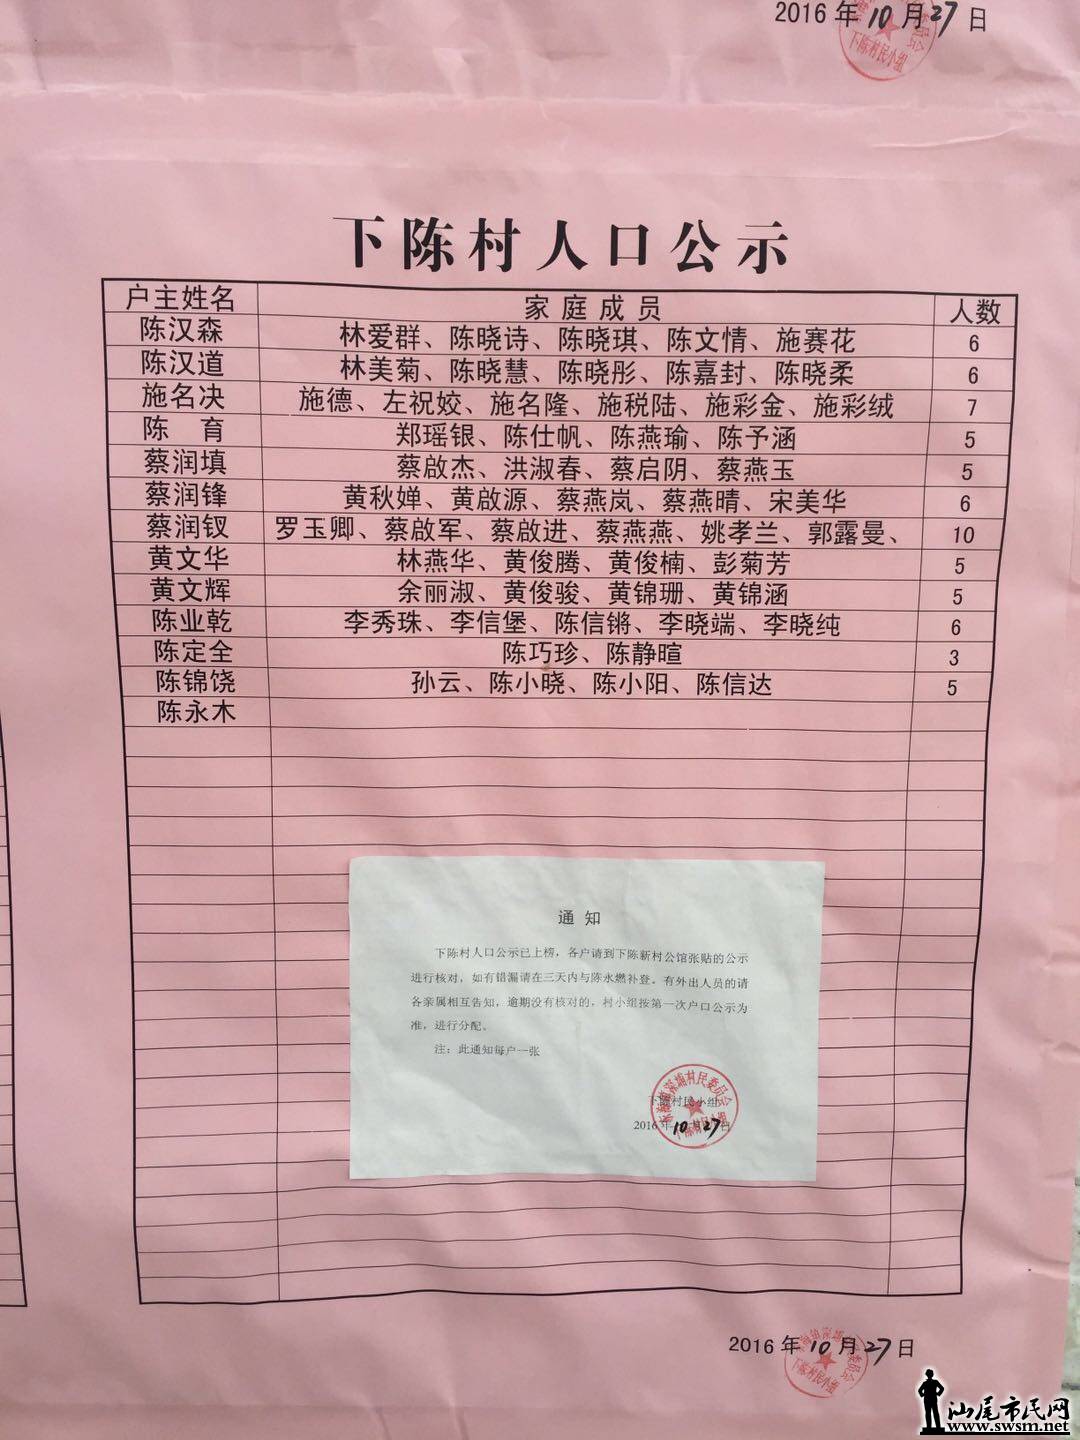 2016年10月27日
下陈村民小组
下陈村人口公示
户主姓名 家庭成员 人数
陈汉森 林爱群、陈晓诗、陈晓琪、陈文情、施赛花 6
陈汉道 林美菊、陈晓慧、陈晓彤、陈嘉封、陈晓柔 6
施名决 施德、左祝姣、施名隆、施税陆、施彩金、施彩绒 7
陈 育 郑瑶银、陈仕帆、陈燕瑜、陈予涵 5
蔡润填 蔡啟杰、洪淑春、蔡启阴、蔡燕玉 5
蔡润锋 黄秋婵、黄啟源、蔡燕岚、蔡燕晴、宋美华 6
蔡润钗 罗玉卿、蔡啟军、蔡啟进、蔡燕燕、姚孝兰、郭露曼、 10
黄文华 林燕华、黄俊腾、黄俊楠、彭菊芳 5
黄文辉 余丽淑、黄俊骏、黄锦珊、黄锦涵 5
陈业乾 李秀珠、李信堡、陈信锵、李晓端、李晓纯 6
陈定全 陈巧珍、陈静暄 3
陈锦饶 孙云、陈小晓、陈小阳、陈信达 5
陈永木
通知
下陈村人口公示已上榜，各户请到下陈新村公馆张贴的公示
进行核对，如有错漏请在三天内与陈永燃补登。有外出人员的请
各亲属相互告知，逾期没有核对的，村小组按第一次户口公示为
准，进行分配。
注：此通知每户一张
下陈村民小组
2016年10月27日
2016年10月27日
下陈村民小组
汕尾市民网
www.swsm.net